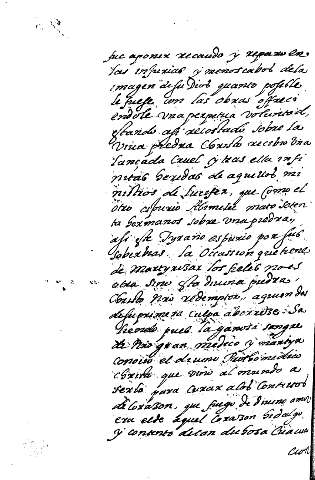 fue aponer recaudo y reparo en
las injurias y menoscabos de la
imagen de su Dios quanto posible
le fuese con las obras ofreci
endole una perpetua voluntad,
estando asi recostado sobre la
viva piedra Christo recibio una
lançada cruel y tras ella infi
nitas heridas de aquellos mi
nistros de lucifer, que como el
otro espurio Abimelec mato seten
ta hermanos sobre una piedra,
asi este Tyrano espurio por sus
soberbias. la occassion que tiene
de Martyrizar los fieles no es
otra sino esta divina piedra
Christo Nro redemptor, a quien des
de su primera culpa aborrece: Sa
liendo pues la sangre
de Nro gran medico y martyr
conocio el divino medico
Christo que vino al mundo a
serlo para curar a los contritos
de Corazon, que fuego de divino amor
era el de aquel Corazon hidalgo
y contento de tan dichosa